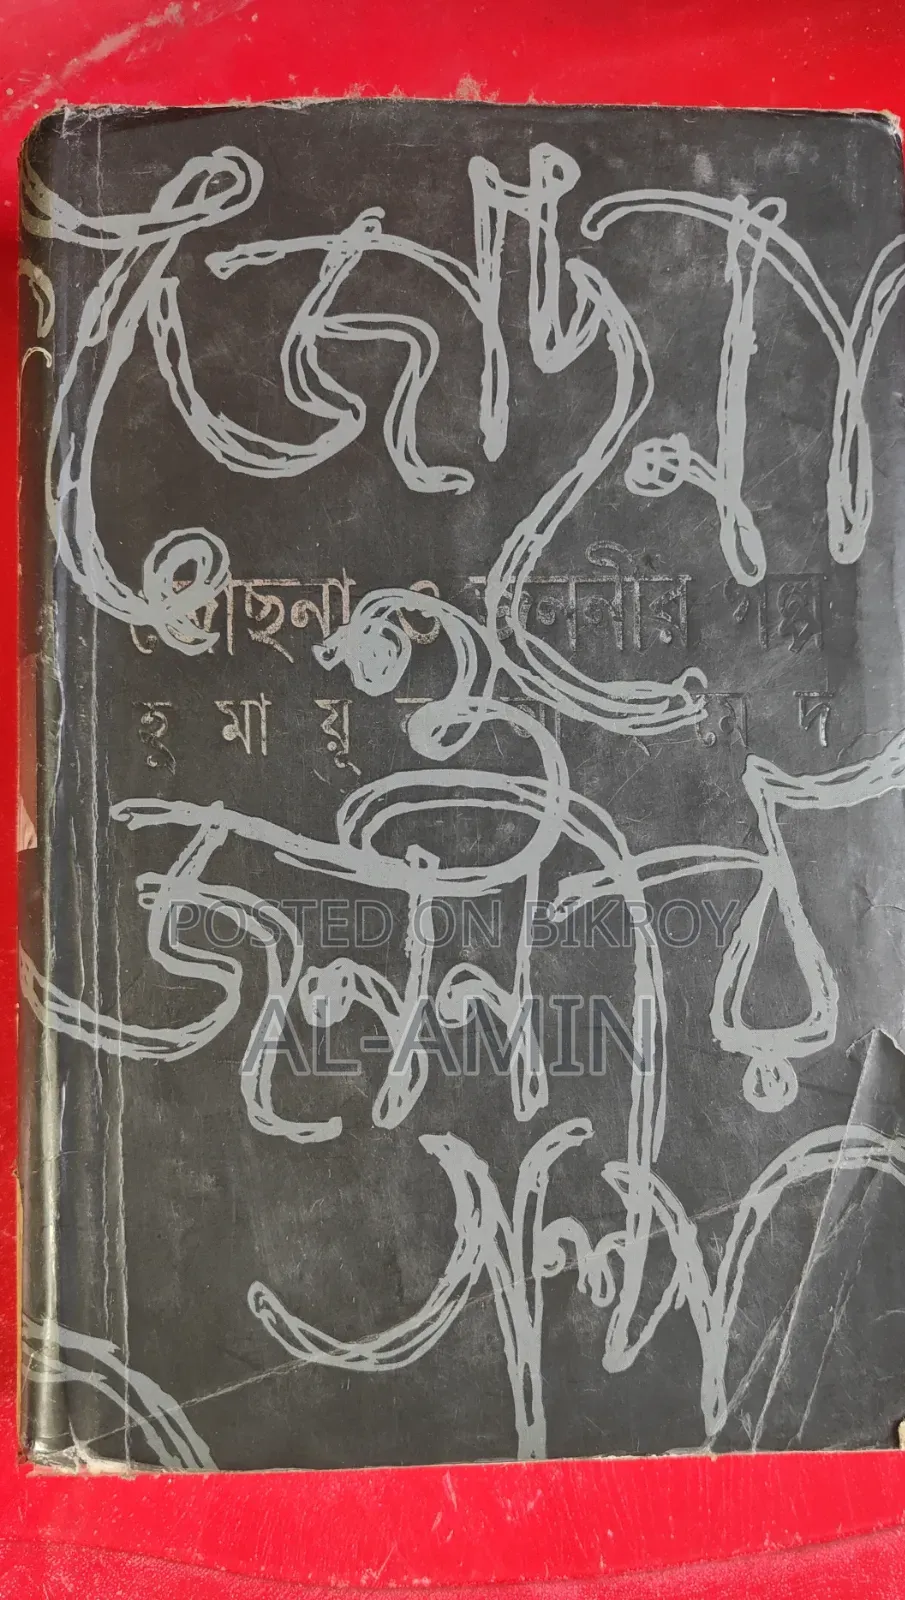 জোছনা
ও
জননীর
গল্প
জোছনা ও জননীর গল্প
হুমায়ূন আহমেদ
POSTED ON BIKROY
AL-AMIN